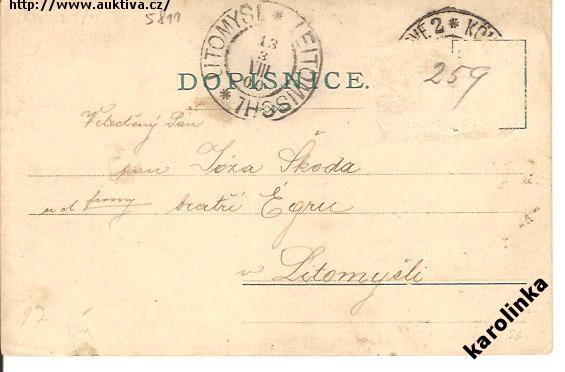 http://www.auktiva.cz/
5811
LITOMYŠL * LEITOMISCHL *
13
3
VIII
00
VÉ 2 * KÖN
259
DOPISNICE.
Velectěný Pán
pan Józa Škoda
u cl firmy bratří Égru
v Litomyšli
97
karolinka